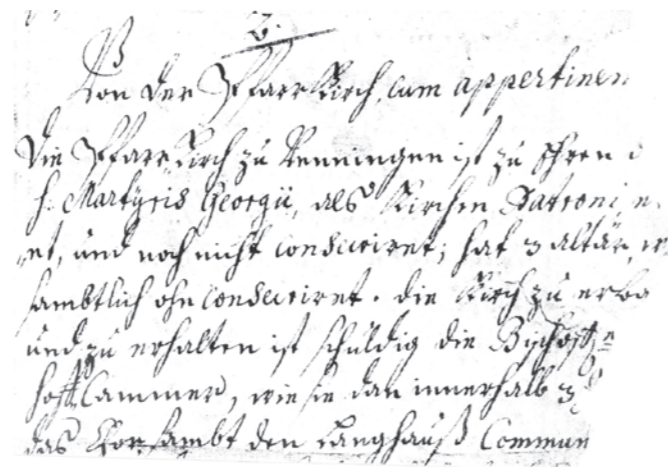 2.
Von der Pfarrkirch, cum appertinen
Die Pfarrkirch zu Venningen ist zu Ehren d
h. Martyris Georgii, als Kirchen Patroni, e.
et, und noch nicht consecriret; hat 3 altär,
sambtlich ohn consecriret. die Kirch zu erba
und zu erhalten ist schuldig die Bischöffe
hoff Cammer, wie sie dan innerhalb 3
das Chor sambt den Langhauß Commun